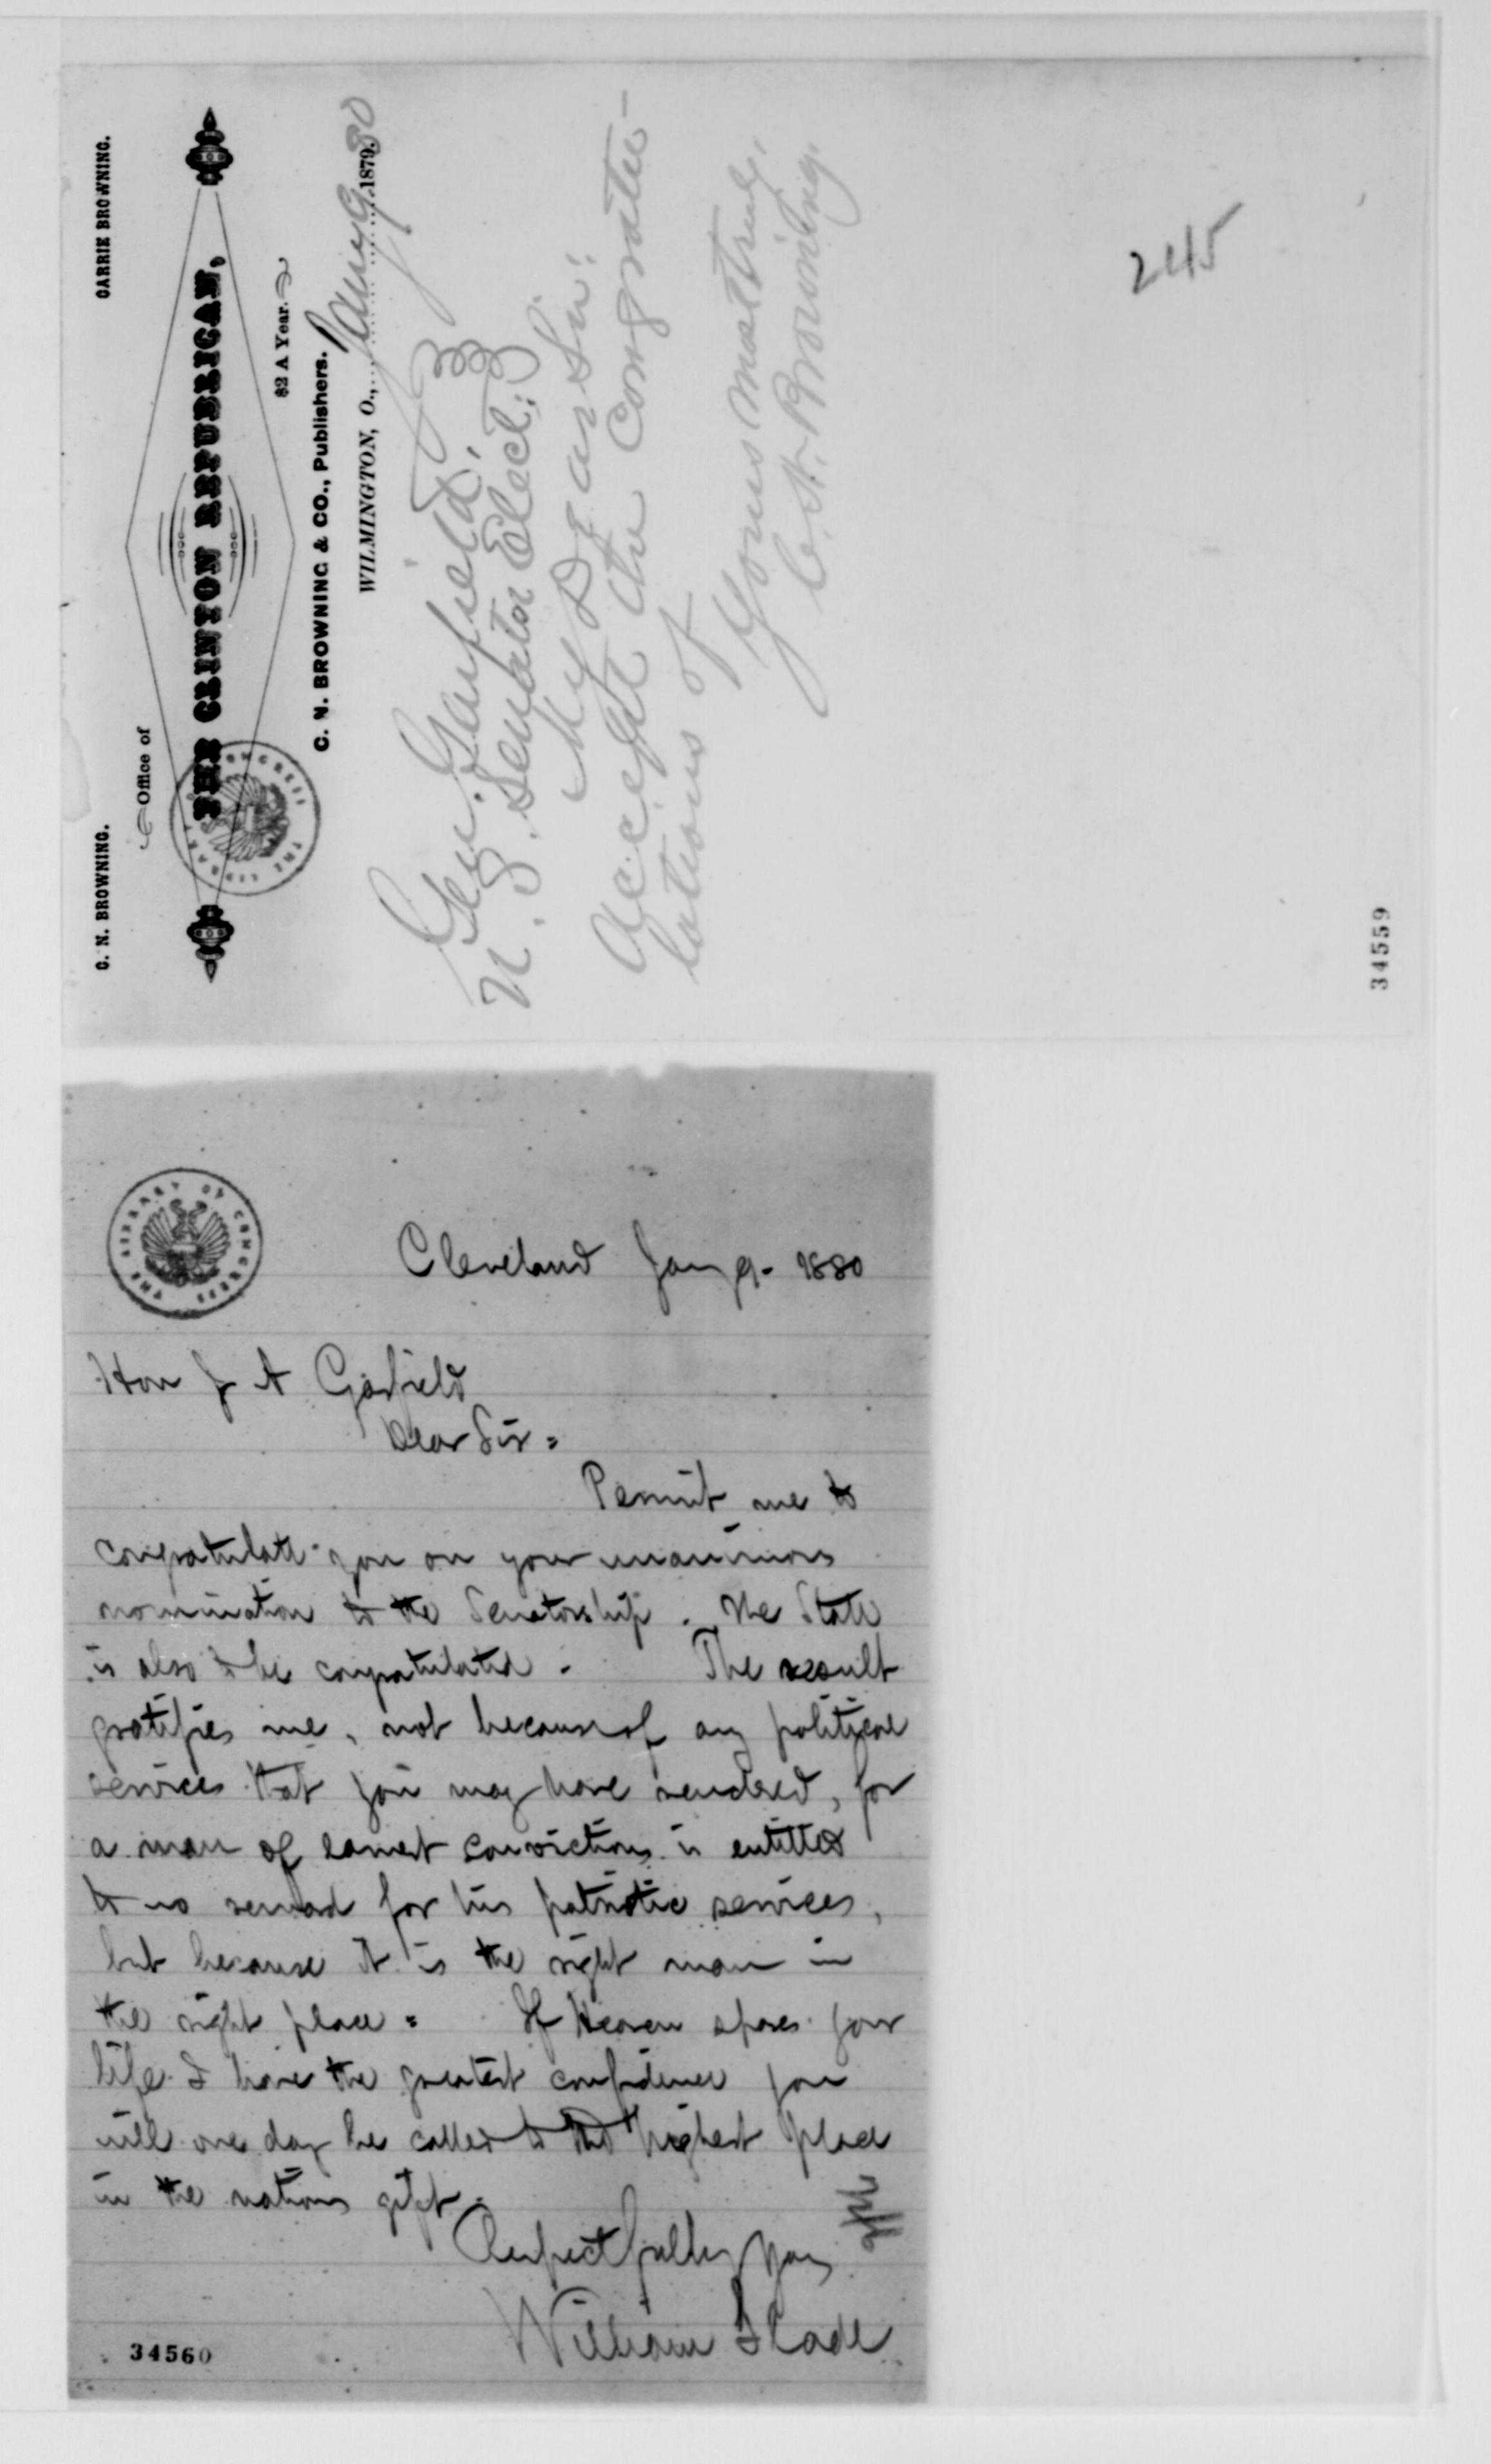 C. N. BROWNING. CARRIE BROWNING.
Office of
THE CLINTON REPUBLICAN,
$2 A Year.
C. N. BROWNING & CO., Publishers.
WILMINGTON, O., Jany 9 1879. 80
Gen. Garfield,
U. S. Senator Elect;
My Dear Sir:
Accept the congratu-
lations of
Yours most truly,
C. N. Browning.
245
34559
THE LIBRARY OF CONGRESS
THE LIBRARY OF CONGRESS
Cleveland Jany 9. 1880
Hon J A Garfield
Dear Sir =
Permit me to
congratulate you on your unanimous
nomination to the Senatorship. The State
is also to be congratulated. The result
gratifies me, not because of any political
services that you may have rendered, for
a man of earnest convictions is entitled
to no reward for his patriotic services,
but because it is the right man in
the right place = If Heaven spares your
life I have the greatest confidence you
will one day be called to the highest place
in the nations gift.
Respectfully Yours
William Slade
34560